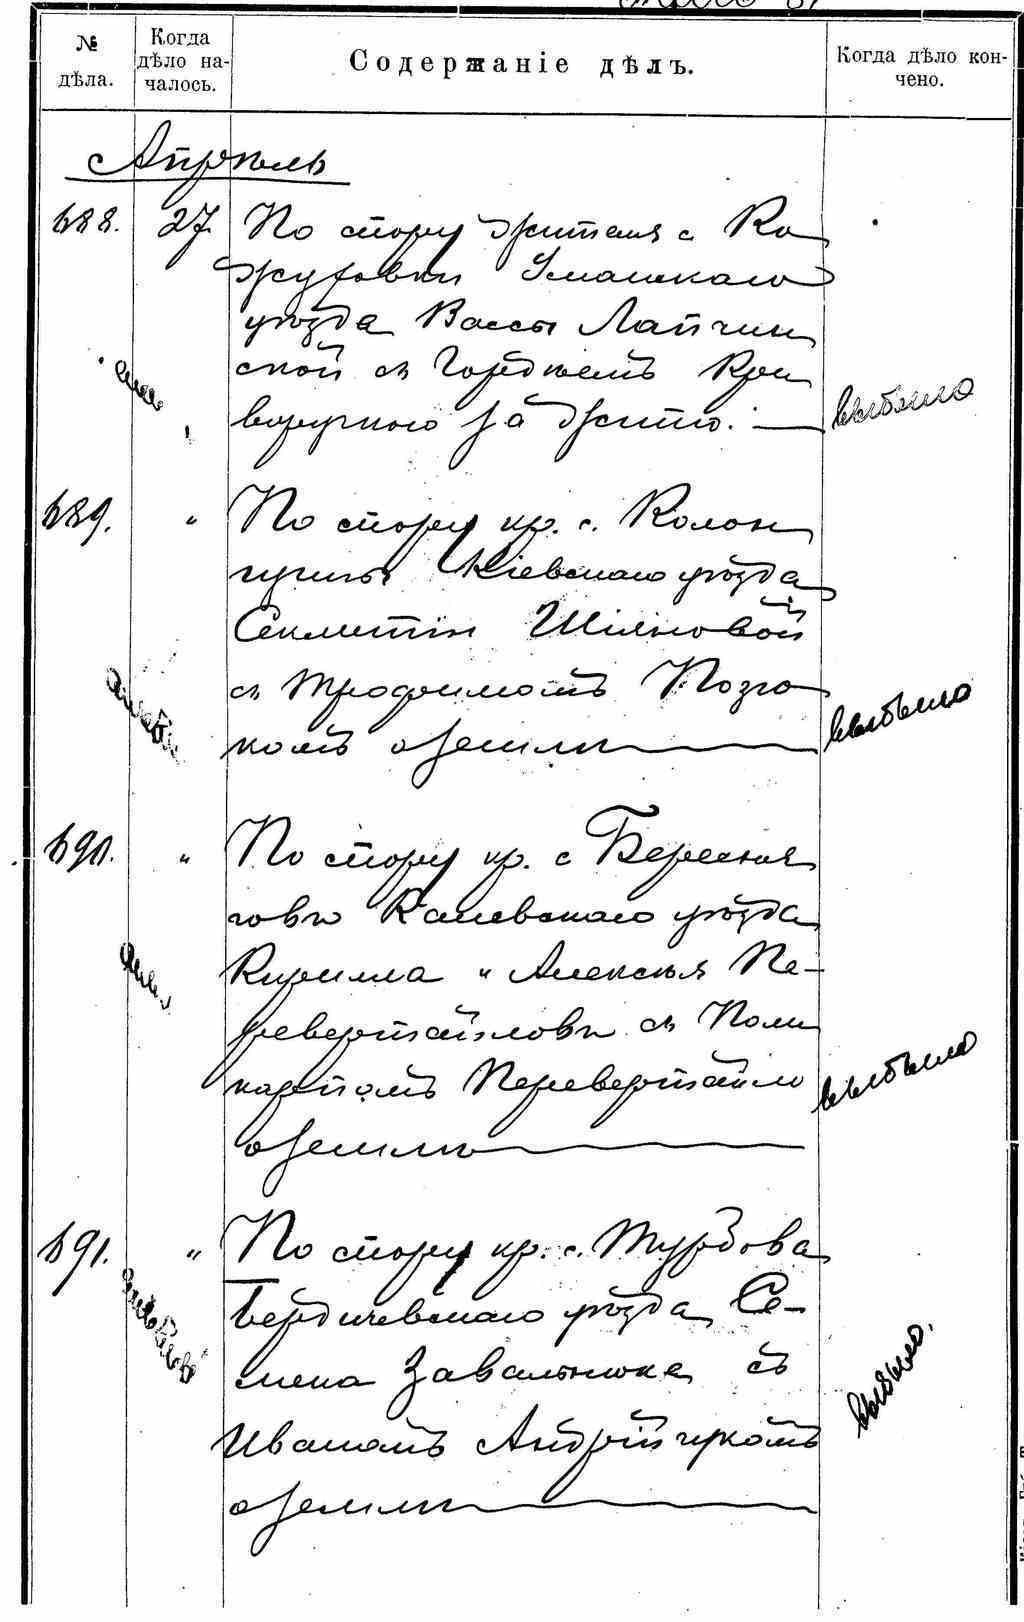 № дѣла.
Когда дѣло на-
чалось.
Содержаніе дѣлъ.
Когда дѣло кон-
чено.
Апрѣль
688. 27 По спору жителя с. Ко
жуховки Уманскаго
уѣзда Вассы Лапчин
ской съ Гордѣемъ Кри
воручкою за жито. —
выбыло
689. „ По спору кр. с.
Кіевскаго уѣзда
Секлетіи
съ Трофимомъ
комъ о землѣ —
выбыло
690. „ По спору кр. с Березня
говъ Каневскаго уѣзда
Кирилла и Алексѣя Пе-
ревертайловъ съ Поли
карпомъ Перевертайло
о землѣ —
выбыло
691. „ По спору кр. с. Турбова
Бердичевскаго уѣзда Се-
мена Завальнюка съ
Иваномъ Андрійчукомъ
о землѣ —
выбыло.